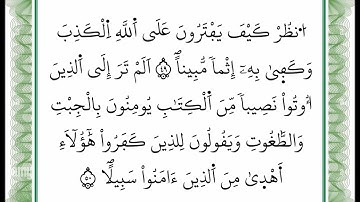 اَ۟نظُرْ كَيْفَ يَفْتَرُونَ عَلَى اَ۬للَّهِ اِ۬لْكَذِبَ
وَكَف۪ىٰ بِهِۦٓ إِثْماٗ مُّبِيناًۖ ۝٤٩ اَلَمْ تَرَ إِلَى اَ۬لذِينَ
أُوتُواْ نَصِيباٗ مِّنَ اَ۬لْكِتَٰبِ يُومِنُونَ بِالْجِبْتِ
وَالطَّٰغُوتِ وَيَقُولُونَ لِلذِينَ كَفَرُواْ هَٰٓؤُلَآءِ
اَهْد۪ىٰ مِنَ اَ۬لذِينَ ءَامَنُواْ سَبِيلاًۖ ۝٥٠